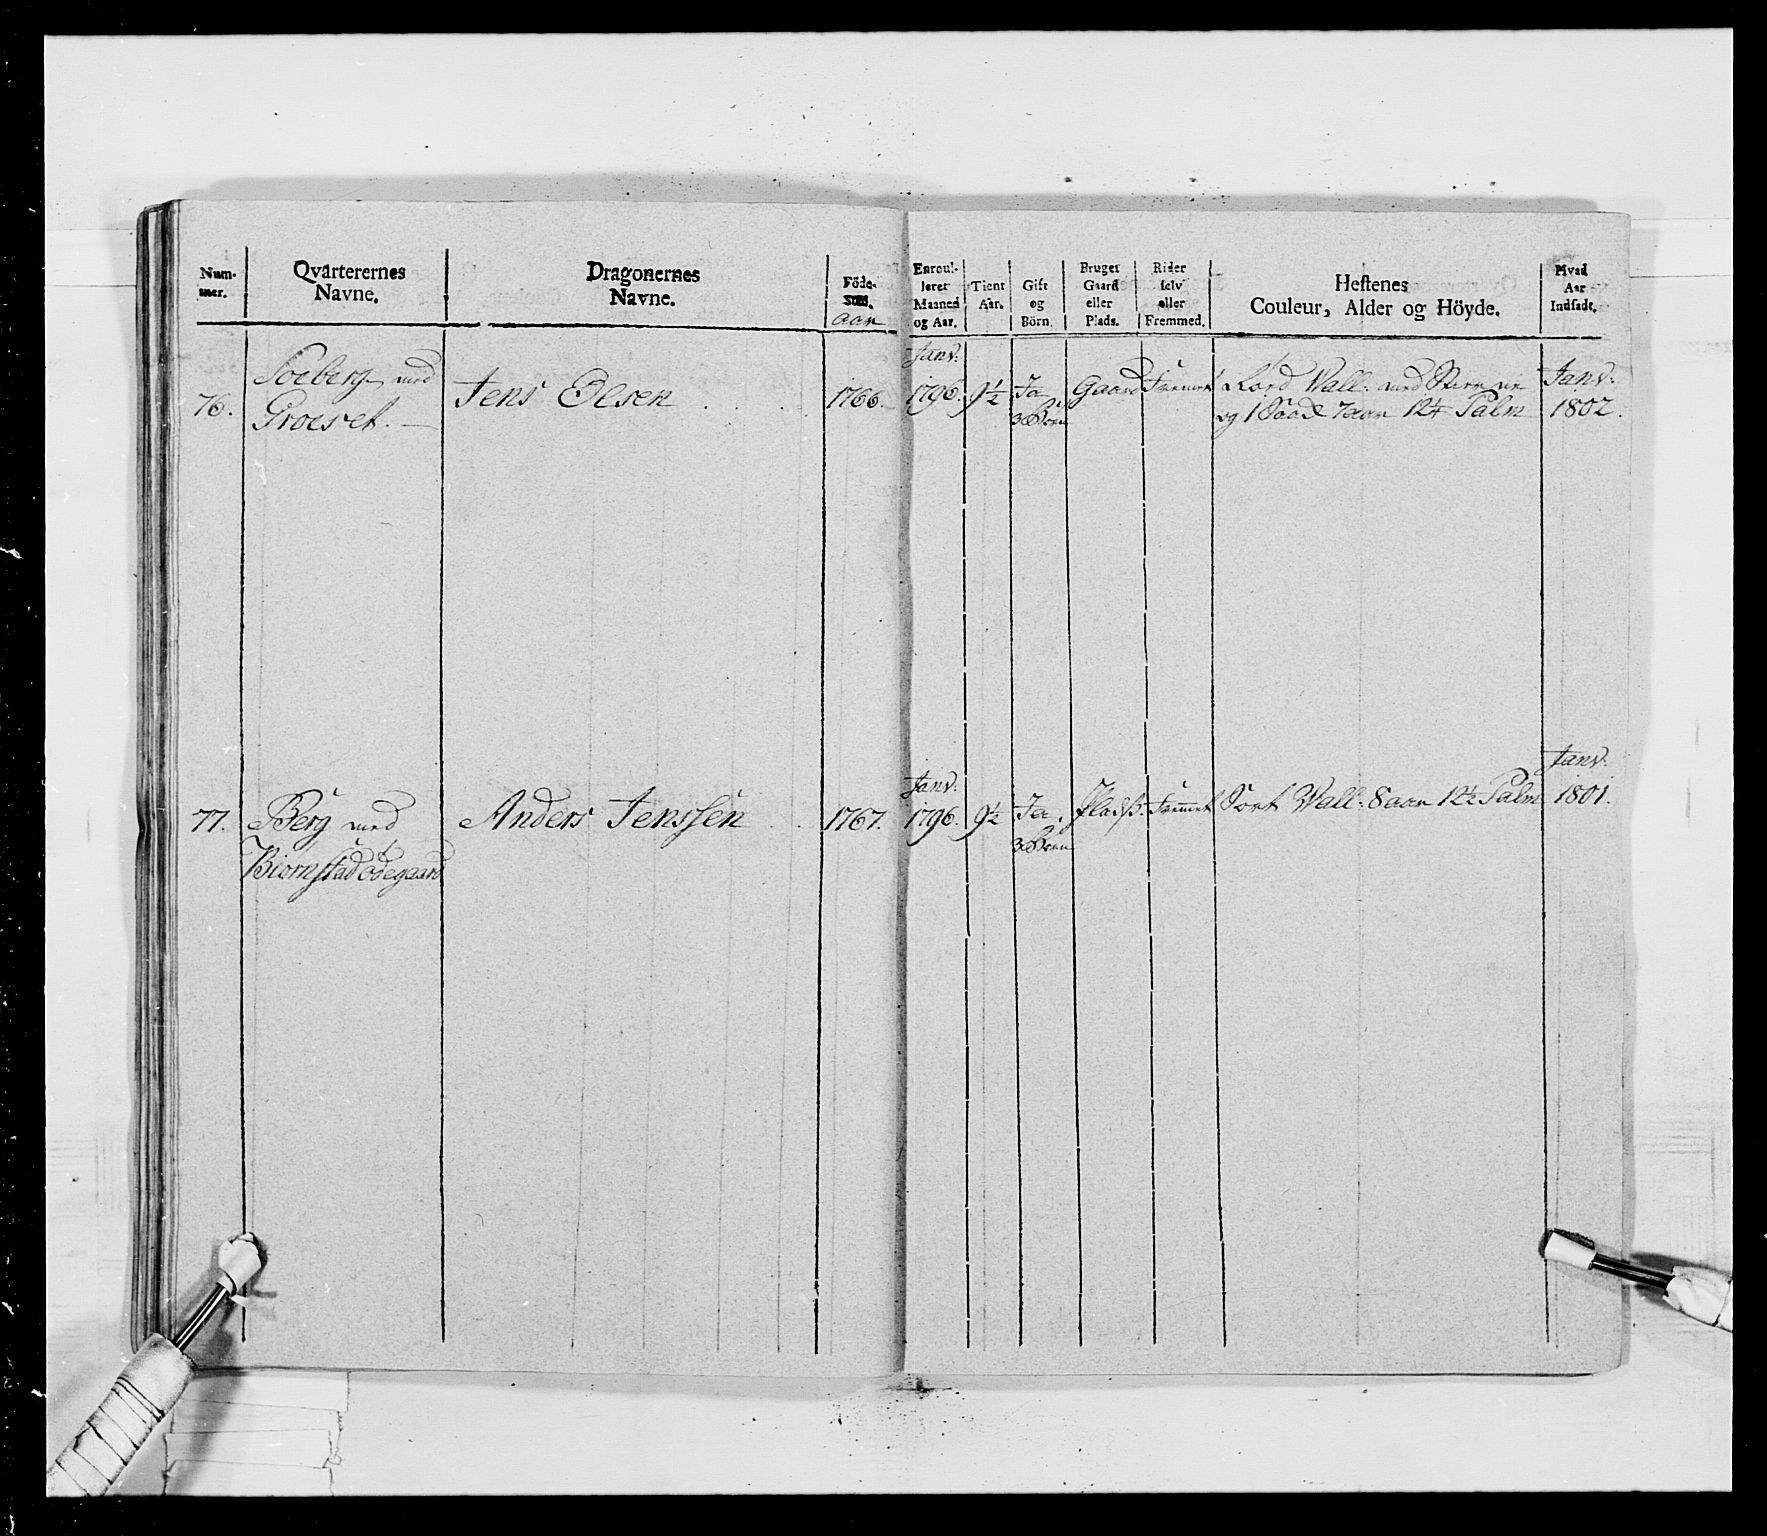 Num-
mer.
Qvarterernes
Navne.
Dragonernes
Navne.
Föde-
Sted.
aar
Enroul-
leret
Maaned
og Aar.
Tient
Aar.
Gift
og
Börn.
Bruger
Gaard
eller
Plads.
Rider
selv
eller
Fremmed.
Hestenes
Couleur, Alder og Höyde.
Hvad
Aar
Indsadt.
76.
Soeberg med
Groeset.
Jens Olsen
1766.
Janv:
1796.
9½
Ja
3 Börn
Gaard
Fremet
Röed Vall: med Stierne
og 1 Saad 7 aar 12¼ Palm
Janv:
1802.
77.
Berg med
Biörnstad ödegaard
Anders Jenssen
1767.
Janv:
1796.
9½
Ja.
3 Börn
Pladss.
Fremet
Sort Vall: 8 aar 12½ Palm
Janv:
1801.